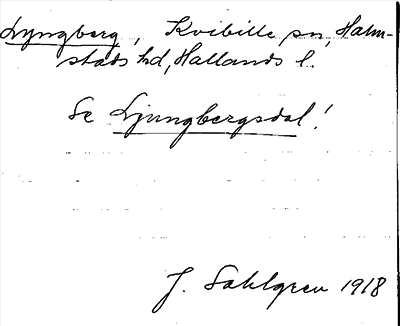 Lyngberg, Kvibille sn, Halm-
stads hd, Hallands l.
Se Ljungbergsdal!
J. Sahlgren 1918